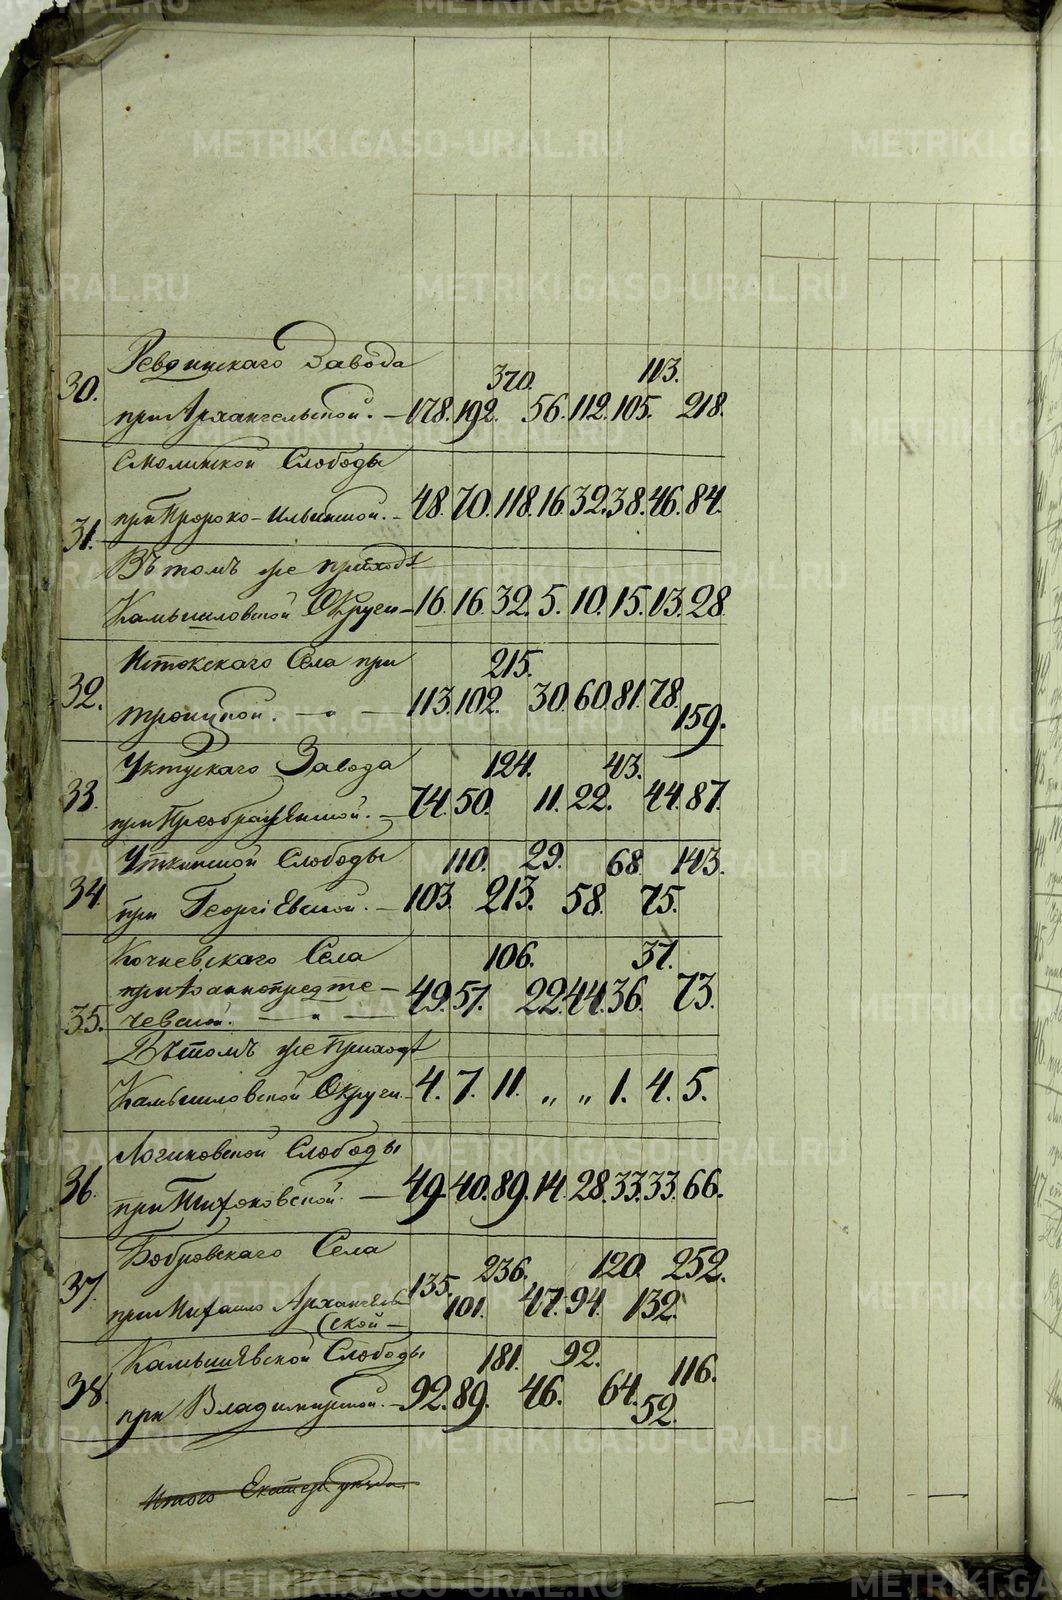 30. Ревдинскаго Завода
при Архангельской. — 178. 192. 370. 56. 112. 105. 113. 218.
Смолинской Слободы
31. при Пророко-Ильинской. - 48. 70. 118. 16. 32. 38. 46. 84.
Въ томъ же приходѣ
Камышловской Округи - 16. 16. 32. 5. 10. 15. 13. 28.
32. Истокскаго Села при
троицкой. — „ — 113. 102. 215. 30. 60. 81. 78. 159.
Уктускаго Завода
33. при Преображенской. — 74. 50. 124. 11. 22. 43. 44. 87.
Уткинской Слободы
34 при Георгіевской. — 103. 110. 213. 29. 58. 68. 75. 143.
Кочневскаго Села
при Іоаннопредте-
35. чевской. — „ — 49. 57. 106. 22. 44. 36. 37. 73.
Въ томъ же приходѣ
Камышловской Округи. - 4. 7. 11. „ „ 1. 4. 5.
Логиновской Слободы
36. при Тихоновской. — 49. 40. 89. 14. 28. 33. 33. 66.
Бобровскаго Села
37. при Михаило Архангель-
ской — 135. 101. 236. 47. 94. 120. 132. 252.
Камышевской Слободы
38. при Владимирской. — 92. 89. 181. 46. 92. 64. 52. 116.
Итого Екатер. уѣзда.
METRIKI.GASO-URAL.RU